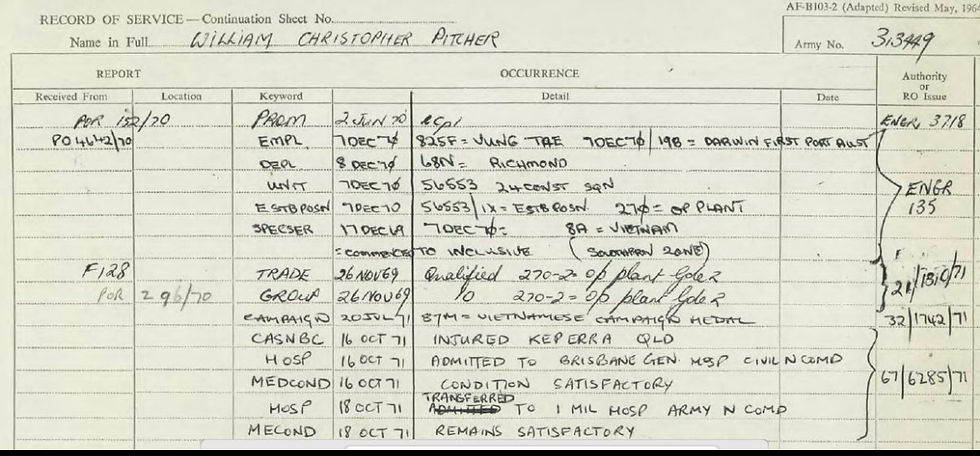 AF-B103-2 (Adapted) Revised May, 1964
RECORD OF SERVICE — Continuation Sheet No.
Name in Full WILLIAM CHRISTOPHER PITCHER
Army No. 313449
REPORT OCCURRENCE Authority or RO Issue
Received From Location Keyword Detail Date
POR 152/70 PROM 2 JUN 70 LCpl ENGR 3718
PO4642/70 EMPL 7DEC70 825F = VUNG TAE 7DEC70/19B = DARWIN FIRST PORT AUST
DEPL 8 DEC70 68N = RICHMOND
UNIT 7DEC70 56553 24 CONST SQN ENGR
ESTBPOSN 7DEC70 56553/1X = ESTBPOSN 270 = OP PLANT 135
SPECSER 17DEC69 7DEC70 = 8A = VIETNAM
= COMMENCED TO INCLUSIVE (SOUTHERN ZONE)
F128 TRADE 26NOV69 Qualified 270-2 = Op plant Gde 2 21/1310/71
POR 296/70 GROUP 26NOV69 To 270-2 = Op plant Gde 2
CAMPAIGN 20JUL71 87M = VIETNAMESE CAMPAIGN MEDAL 32/1742/71
CASNBC 16 OCT 71 INJURED KEPERRA QLD
HOSP 16 OCT 71 ADMITTED TO BRISBANE GEN. HOSP CIVIL N COMD
MEDCOND 16 OCT 71 CONDITION SATISFACTORY 67/6285/71
HOSP 18 OCT 71 TRANSFERRED ADMITTED TO 1 MIL HOSP ARMY N COMD
MECOND 18 OCT 71 REMAINS SATISFACTORY